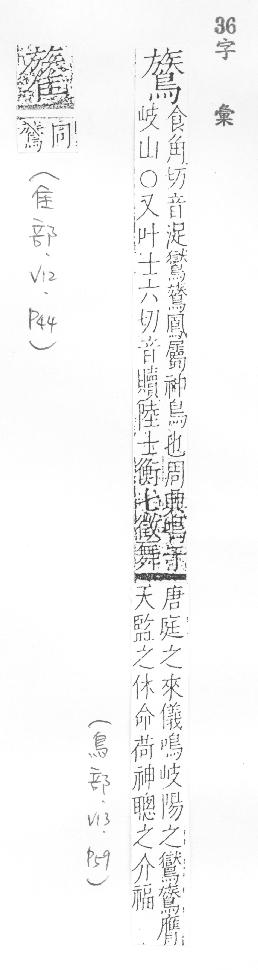 36字彙
鷟
食角切音浞鸑鷟鳳屬神鳥也周興鳴于
岐山○又叶士六切音贖陸士衡七徵舞
唐庭之來儀鳴岐陽之鸑鷟膺
天監之休命荷神聰之介福
(鳥部·V13·P59)
同
鷟
(隹部·V12·P44)